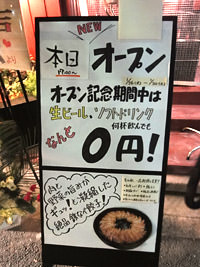 NEW
本日
17:00〜
オープン
オープン記念期間中は
生ビール、ソフトドリンク
何杯飲んでも
なんと
0円!
肉と
野菜の旨みが
ギュッ!と凝縮した
絶品 鉄なべ餃子!